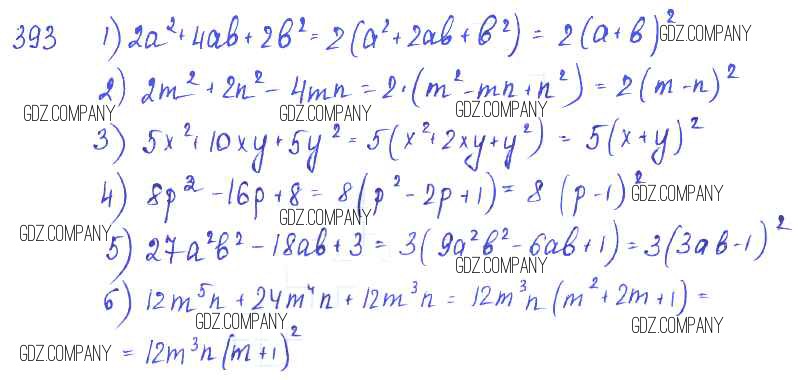 393 1) 2a² + 4ab + 2b² = 2(a² + 2ab + b²) = 2(a + b)²
GDZ.COMPANY
2) 2m² + 2n² - 4mn = 2·(m² - mn + n²) = 2(m - n)²
GDZ.COMPANY GDZ.COMPANY GDZ.COMPANY
3) 5x² + 10xy + 5y² = 5(x² + 2xy + y²) = 5(x + y)²
4) 8p² - 16p + 8 = 8(p² - 2p + 1) = 8 (p - 1)²
GDZ.COMPANY GDZ.COMPANY GDZ.COMPANY
5) 27a²b² - 18ab + 3 = 3(9a²b² - 6ab + 1) = 3(3ab - 1)²
GDZ.COMPANY
6) 12m⁵n + 24m⁴n + 12m³n = 12m³n (m² + 2m + 1) =
GDZ.COMPANY GDZ.COMPANY
GDZ.COMPANY = 12m³n (m + 1)²